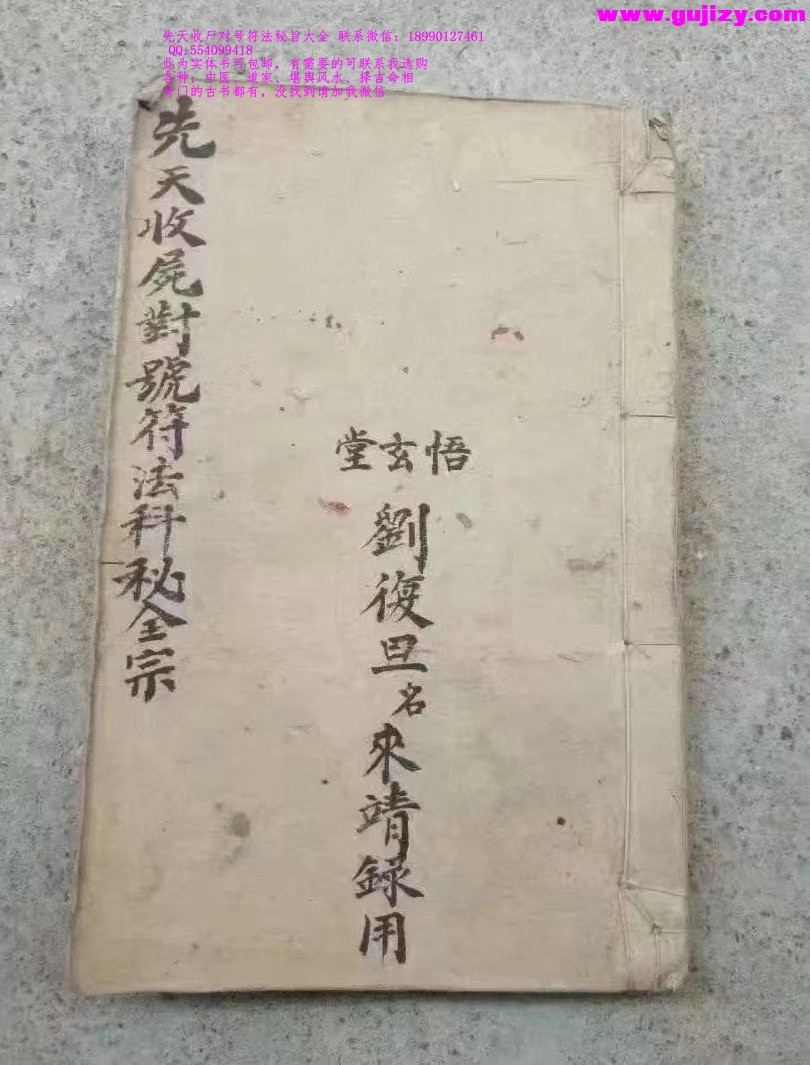 www.gujizy.com
先天收尸对号符法秘旨大全 联系微信：18990127461
QQ:554099418
此为实体书可包邮，有需要的可联系我选购
各种：中医、道家、堪舆风水、择吉命相
奇门的古书都有，没找到请加我微信
悟玄堂
劉復旦名來靖錄用
先天收屍對號符法科秘全宗